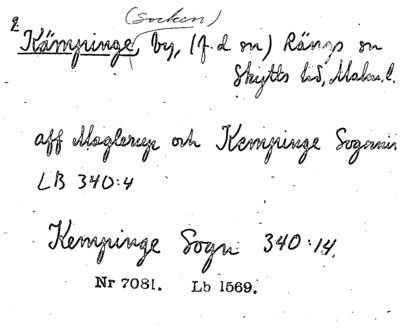 (socken)
2. Kämpinge, by, (f.d. sn) Rängs sn
Skytts hd, Malm. l.
aff Maglerup och Kempinge Sogner
LB 340:4
Kempinge Sogn 340:14.
Nr 7081. Lb 1569.